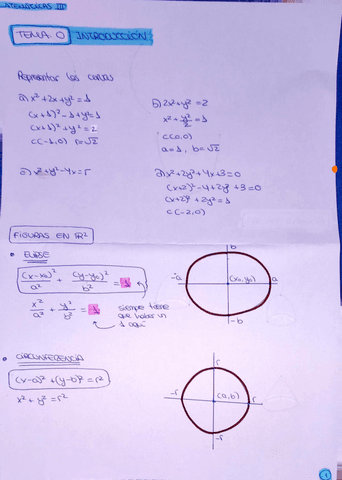 MATEMÁTICAS III
TEMA 0 INTRODUCCIÓN
Representar las curvas
a) x² + 2x + y² = 1
(x+1)² - 1 + y² = 1
(x+1)² + y² = 2
C(-1,0) r=√2
b) 2x² + y² = 2
x² + y²/2 = 1
C(0,0)
a=1, b=√2
c) x² + y² - 4x = 5
d) x² + 2y² + 4x + 3 = 0
(x+2)² - 4 + 2y² + 3 = 0
(x+2)² + 2y² = 1
C(-2,0)
FIGURAS EN ℝ²
• ELIPSE
(x-x₀)²/a² + (y-y₀)²/b² = 1
x²/a² + y²/b² = 1
siempre tiene
que haber un
1 aquí
b
-a (x₀,y₀) a
-b
• CIRCUNFERENCIA
(x-a)² + (y-b)² = r²
x² + y² = r²
r
-r (a,b) r
-r
1